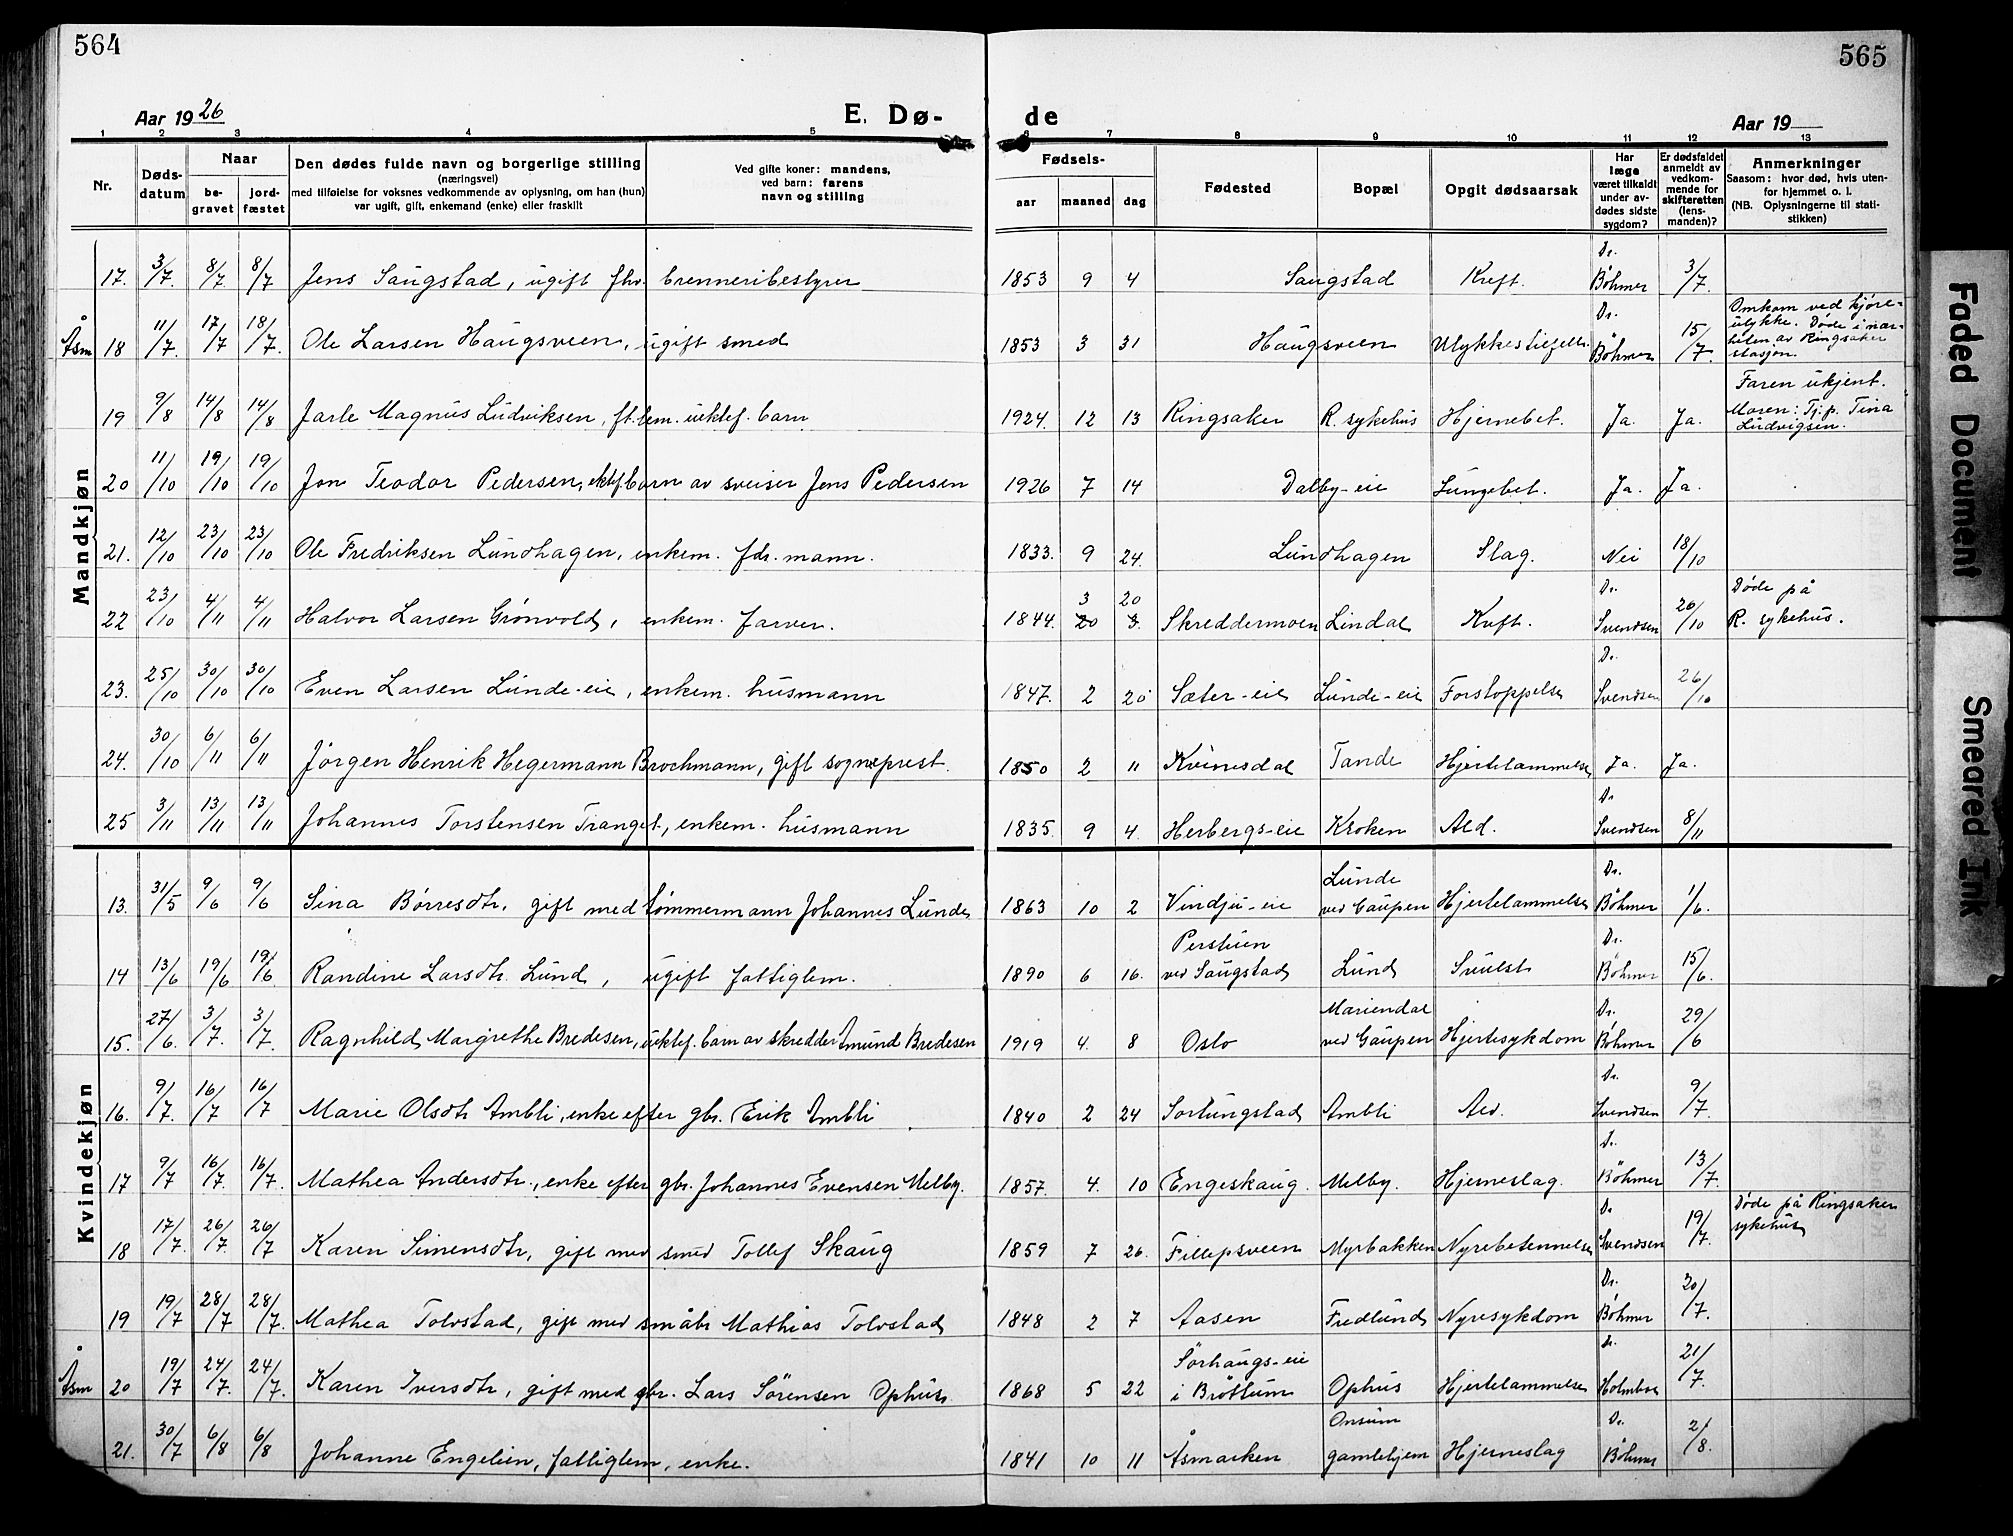 564
565
Aar 1926
E. Dø-
de
Aar 19
1 2 3 4 5 6 7 8 9 10 11 12 13
Nr.
Døds-
datum
Naar
be-
gravet
jord-
fæstet
Den dødes fulde navn og borgerlige stilling
(næringsvei)
med tilføielse for voksnes vedkommende av oplysning, om han (hun)
var ugift, gift, enkemand (enke) eller fraskilt
Ved gifte koner: mandens,
ved barn: farens
navn og stilling
Fødsels-
aar maaned dag
Fødested
Bopæl
Opgit dødsaarsak
Har
læge
været tilkaldt
under av-
dødes sidste
sygdom?
Er dødsfaldet
anmeldt av
vedkom-
mende for
skifteretten
(lens-
manden)?
Anmerkninger
Saasom: hvor død, hvis uten-
for hjemmet o. l.
(NB. Oplysningerne til stati-
stikken)
Mandkjøn
17. 3/7. 8/7. 8/7 Jens Saugstad, ugift fhv. brenneribestyrer 1853 9 4 Saugstad Kreft. Dr. Böhmer 3/7.
Åsm 18 11/7. 17/7 18/7. Ole Larsen Haugsveen, ugift smed 1853 3 31 Haugsveen Ulykkestilfelle Dr. Böhmer 15/7. Omkom ved kjøre-
ulykke. Døde i nær-
heten av Ringsaker
stasjon.
19 9/8 14/8 14/8 Jarle Magnus Ludviksen, ft.lem. uektef. barn 1924. 12 13 Ringsaker R. sykehus Hjernebet. Ja. Ja. Faren ukjent.
Moren: Tj.p. Tina
Ludvigsen.
20 11/10 19/10 19/10 Jon Teodor Pedersen, ektef barn av sveiser Jens Pedersen 1926 7 14 Dalby-eie Lungebet. Ja. Ja.
21. 12/10 23/10 23/10 Ole Fredriksen Lundhagen, enkem. fdr. mann. 1833. 9 24. Lundhagen Slag. Nei 18/10
22 23/10 4/11 4/11 Halvor Larsen Grönvold, enkem. farver. 1844. 3 20 Skreddermoen Lindal Kreft. Dr. Svendsen 26/10 Døde på
R. sykehus.
23. 25/10 30/10 30/10 Even Larsen Lunde-eie, enkem. husmann 1847. 2 20 Sæter-eie Lunde-eie Forstoppelse Dr. Svendsen 26/10
24. 30/10 6/11 6/11 Jörgen Henrik Hegermann Brochmann, gift sogneprest. 1850 2 11 Kvinesdal Tande Hjertelammelse Ja. Ja.
25 3/11 13/11 13/11 Johannes Torstensen Tranget, enkem. husmann 1835. 9 4. Herbergs-eie Kroken Ald. Dr Svendsen 8/11
Kvindekjøn
13. 31/5 9/6 9/6 Sina Børresdtr. gift med tømmermann Johannes Lunde 1863 10 2 Vindju-eie Lunde ved Gaupen Hjertelammelse Dr. Böhmer 1/6.
14 13/6 19/6 19/6 Randine Larsdtr. Lund, ugift fattiglem. 1890 6 16. Perstuen ved Saugstad Lund Svulst Dr. Böhmer 15/6.
15. 27/6. 3/7. 3/7. Ragnhild Margrethe Bredesen, uektef. barn av skredder Amund Bredesen 1919 4. 8 Oslo Mariendal ved Gaupen Hjertesykdom Dr. Böhmer 29/6
16. 9/7. 16/7 16/7 Marie Olsdtr Ambli, enke efter gbr. Erik Ambli 1840 2 24 Sortungstad Ambli Ald. Dr. Svendsen 9/7.
17 9/7 16/7. 16/7. Mathea Andersdtr., enke efter gbr. Johannes Evensen Melby. 1857. 4. 10 Engeskaug. Melby. Hjerneslag. Dr. Böhmer 13/7.
18 17/7. 26/7. 26/7 Karen Simensdtr, gift med smed Tollef Skaug 1859 7 26. Fillepsveen Myrbakken Nyrebetennelse Dr Svendsen 19/7. Døde på Ringsaker
sykehus
19 19/7 28/7 28/7. Mathea Tolvstad, gift med småbr Mathias Tolvstad 1848 2 7 Aasen Fredlund Nyresykdom Dr. Böhmer 20/7.
Åsm 20 19/7 24/7. 24/7. Karen Iversdtr, gift med gbr. Lars Sörensen Ophus. 1868 5 22 Sörhaugs-eie i Bröttum Ophus Hjertelammelse Dr. Holmboe 21/7.
21. 30/7 6/8 6/8 Johanne Engelien, fattiglem, enke. 1841 10 11 Åsmarken Onsum gamlehjem Hjerneslag Dr. Böhmer 2/8.
Faded Document
Smeared Ink